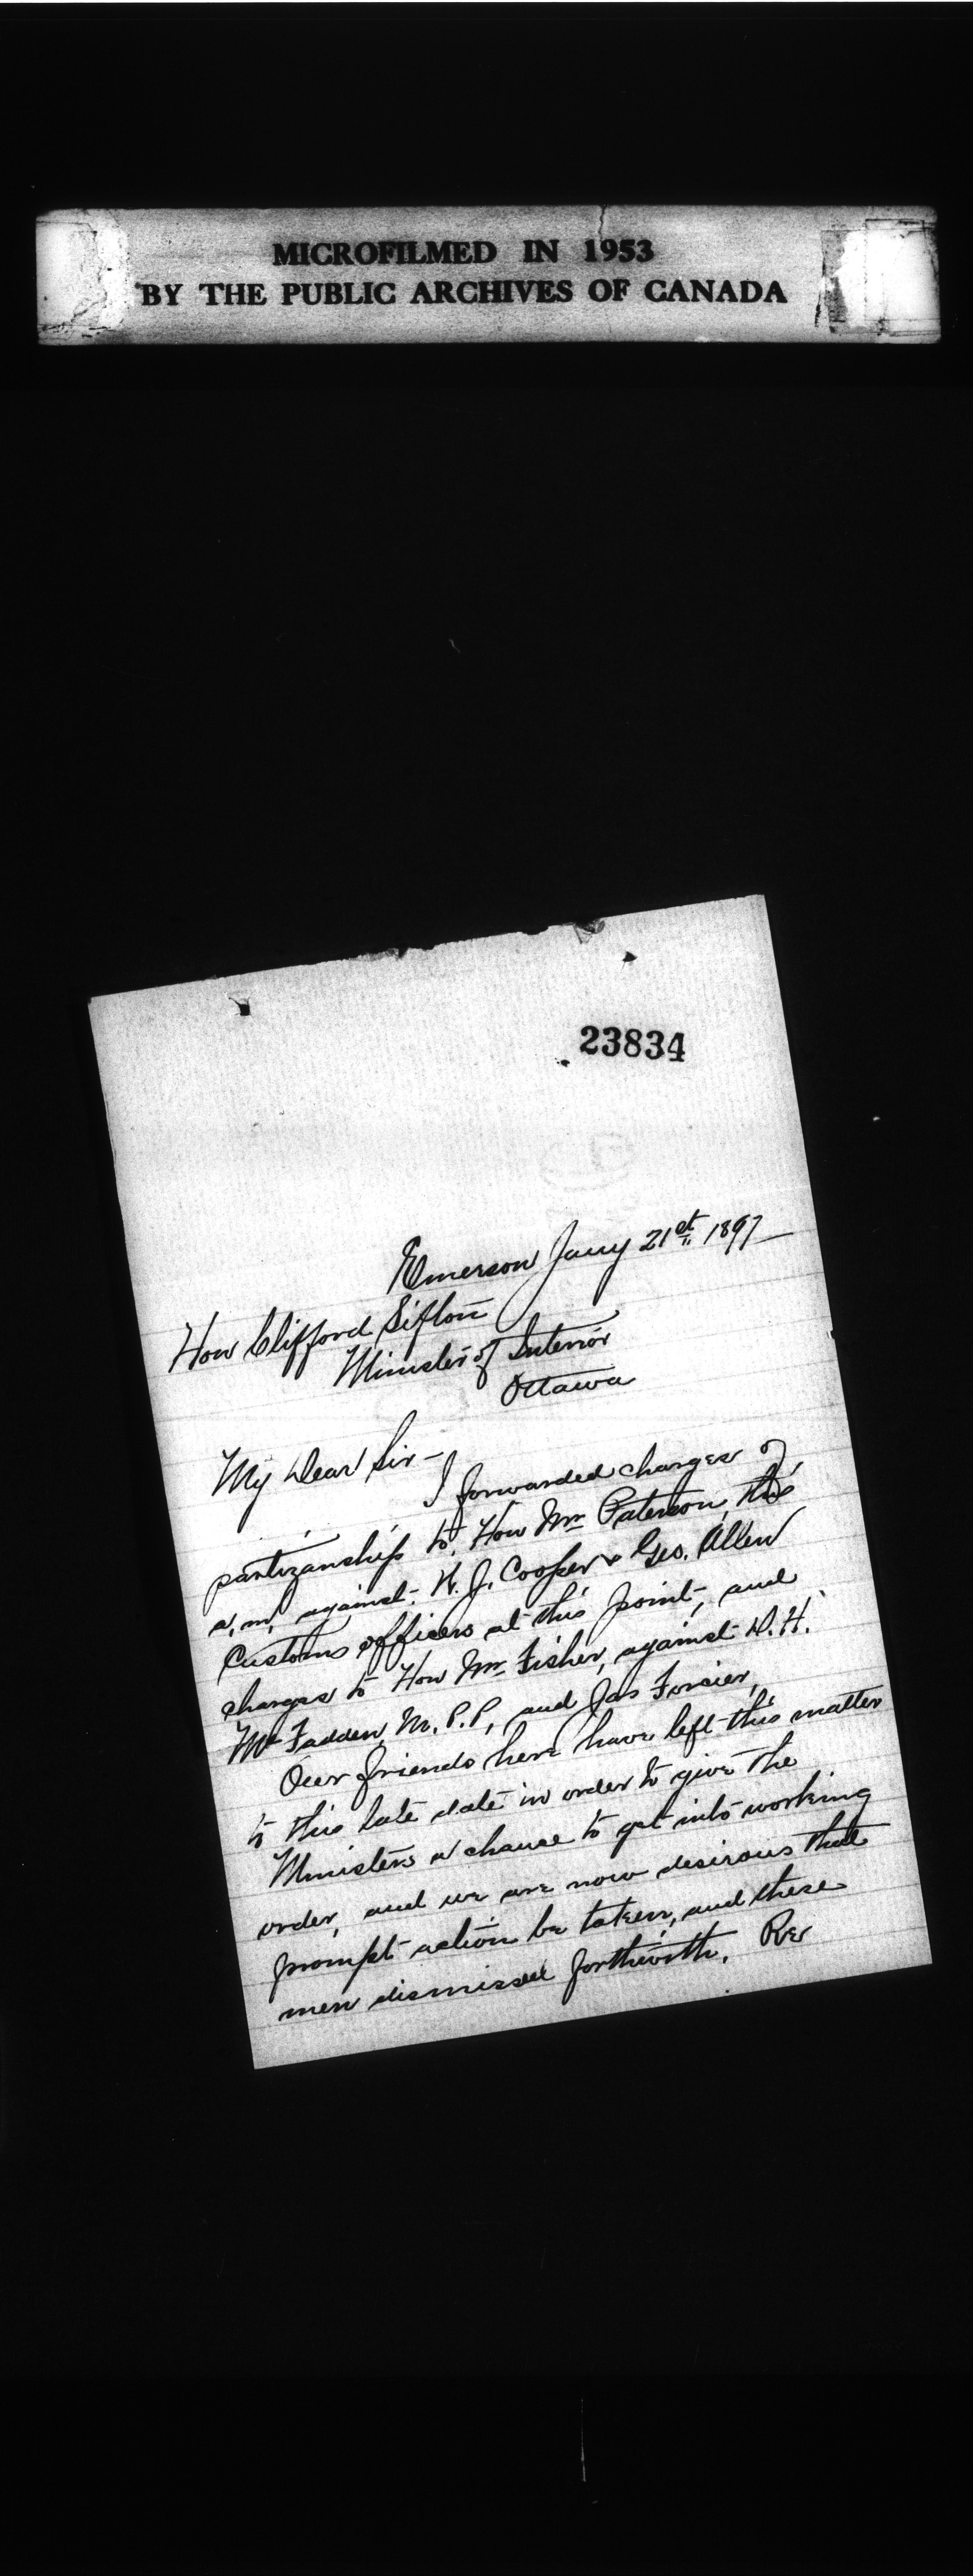 MICROFILMED IN 1953
BY THE PUBLIC ARCHIVES OF CANADA
23834
Emerson Jany 21st 1897
Hon Clifford Sifton
Minister of Interior
Ottawa
My Dear Sir -
I forwarded charges of
partizanship to Hon Mr Paterson, this
a.m. against W. J. Cooper & Geo. Allen
Customs officers at this point, and
charges to Hon Mr Fisher, against D. H.
McFadden, M.P.P, and Jas
Our friends here have left this matter
to this late date in order to give the
Ministers a chance to get into working
order, and we are now desirous that
prompt action be taken, and these
men dismissed forthwith. Rev